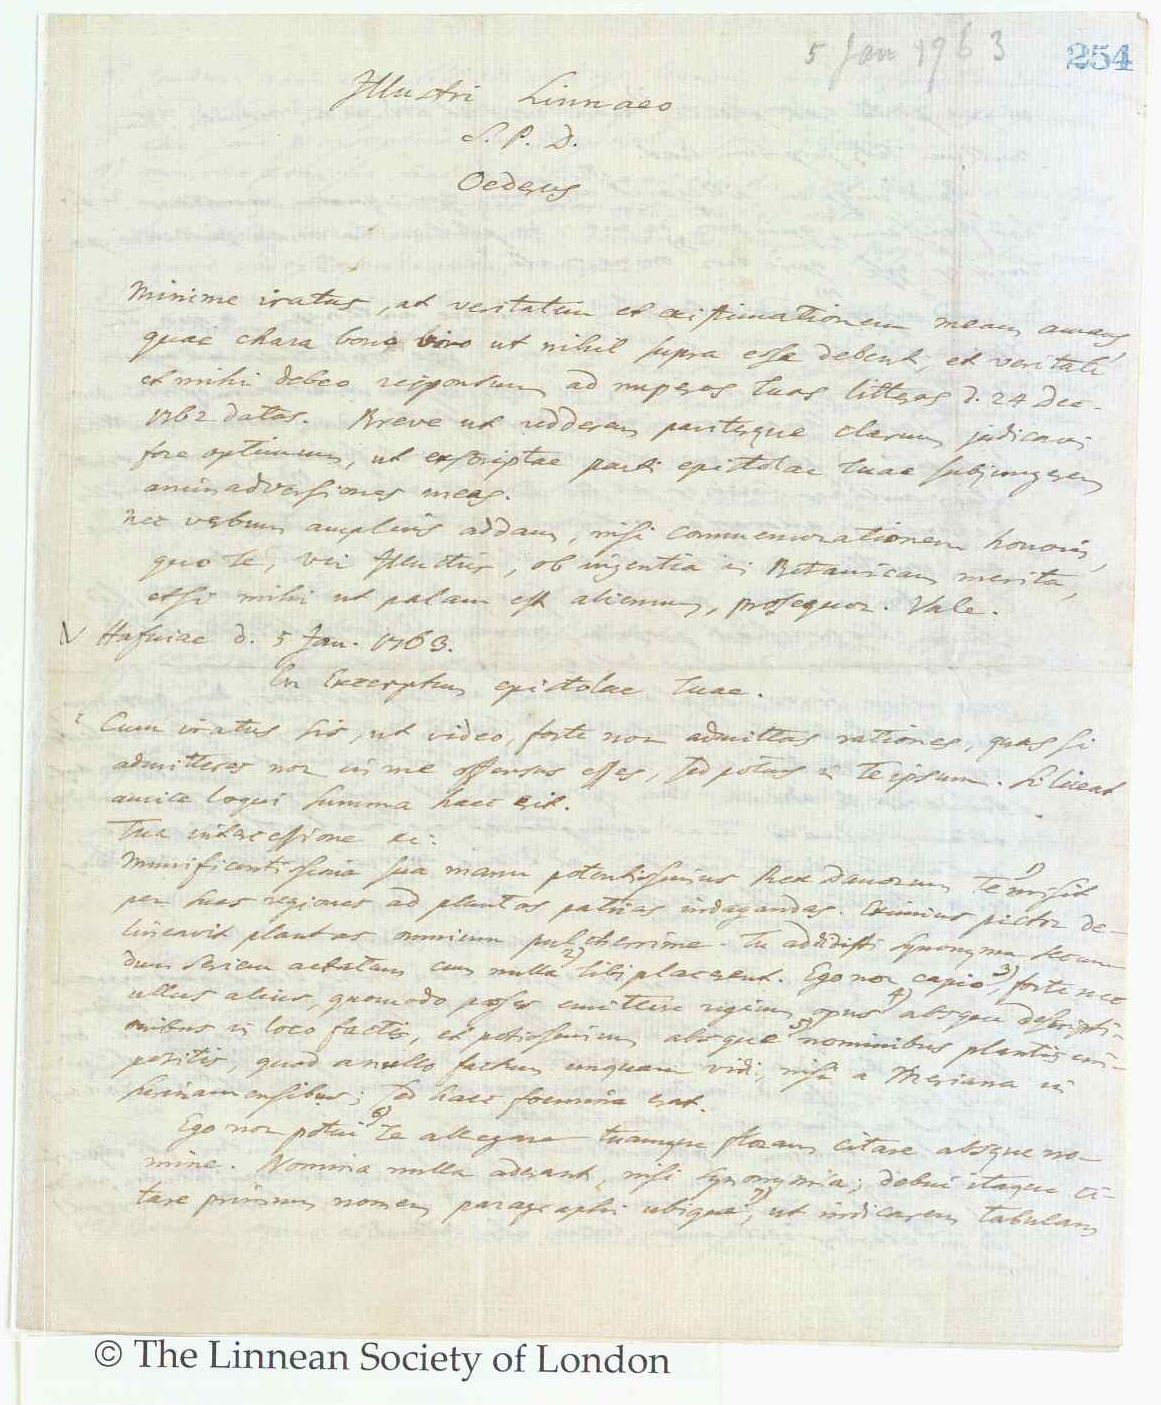 5 Jan 1763
254
Illustri Linnaeo
S. P. D.
Oederus
Minime iratus, at veritatum et existimationem meam amans
quae chara bono viro ut nihil supra esse debent, et veritati
et mihi debeo responsum ad nuperas tuas litteras d. 24 Dec.
1762 datas. Breve ut redderem pariterque clarum judicavi
fore optimum, ut exscriptae parti epistolae tuae subjungerem
animadversiones meas.
Nec verbum amplius addam, nisi commemorationem honoris,
quo te, vir Illustris, ob ingentia in Botanicam merita,
etsi mihi ut palam est alienum, prosequor. Vale.
Hafniae d. 5 Jan. 1763.
En Excerptum epistolae tuae.
Cum iratus sis, ut video, forte non admittas rationes, quas si
admitteres non in me offensus esses, sed potius in te ipsum. Si liceat
amice loqui summa haec erit.
Tua intercessione &c:
Munificentissima sua manu potentissimus Rex Danorum Te 1) misit
per suas regiones ad plantas patrias indagandas. Eximius pictor de-
lineavit plantas omnium pulcherrime. Tu addidisti synonyma secun
dum seriem aetatum cum nulla 2) tibi placerent. Ego non capio 3), forte nec
ullus alius, quomodo posses emittere regium opus 4) absque descripti-
onibus in loco factis, et potissimum absque 5) nominibus plantis im-
positis, quod a nullo factum unquam vidi, nisi a Meriana in
Surinamensibus; sed haec foemina erat.
Ego non potui 6) Te allegare tuamque floram citare absque no-
mine. Nomina nulla aderant, nisi synonymia; debui itaque ci-
tare primum nomen paragraphi ubique 7), ut indicarem tabulam
© The Linnean Society of London